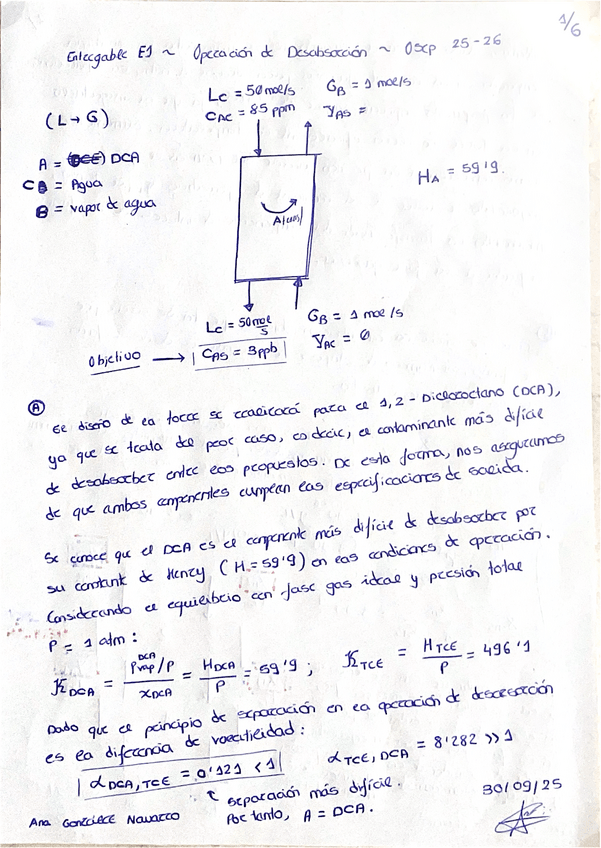 1/6
Entregable E1 ~ Operación de Desabsorción ~ OSEP 25-26
LC = 50 mol/s GB = 1 mol/s
CAC = 85 ppm YAS =
(L → G)
A = DCA
C = Agua
B = vapor de agua
HA = 59'9.
A
LC = 50 mol/s GB = 1 mol/s
Objetivo → CAS = 3 ppb YAC = 0
A
El diseño de la torre se realizará para el 1,2 - Dicloroetano (DCA),
ya que se trata del peor caso, es decir, el contaminante más difícil
de desabsorber entre los propuestos. De esta forma, nos aseguramos
de que ambos componentes cumplan las especificaciones de salida.
Se conoce que el DCA es el componente más difícil de desabsorber por
su constante de Henry (H = 59'9) en las condiciones de operación.
Considerando el equilibrio con fase gas ideal y presión total
P = 1 atm :
KDCA = (Pvap DCA/P)/xDCA = HDCA/P = 59'9 ; KTCE = HTCE/P = 496'1
Dado que el principio de separación en la operación de desorción
es la diferencia de volatilidad :
αDCA,TCE = 0'121 < 1 αTCE,DCA = 8'282 >> 1
separación más difícil.
Por tanto, A = DCA.
30/09/25
Ana González Navarro